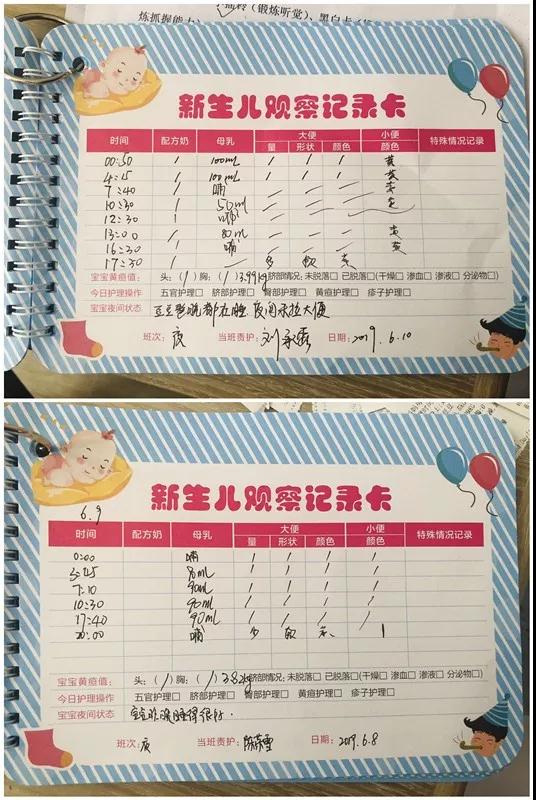 炼抓握能力)
(锻炼听觉)、黑白卡
新生儿观察记录卡
时间 配方奶 母乳 大便 小便 特殊情况记录
量 形状 颜色 颜色
00:50 / 100ml / / / 黄
4:15 / 100ml / / / 黄
7:40 / 哺
10:30 / 50ml
12:30 哺
13:00 / 80ml 黄
16:30 / 哺 黄
17:30 / 多 软 黄
宝宝黄疸值: 头:(/)胸:(/)3.99kg 脐部情况:未脱落□ 已脱落□(干燥□ 渗血□ 渗液□ 分泌物□)
今日护理操作 五官护理□ 脐部护理□ 臀部护理□ 黄疸护理□ 疹子护理□
宝宝夜间状态 豆豆整晚都在睡 夜间未拉大便
班次:夜 当班责护: 日期:2019.6.10
新生儿观察记录卡
6.9
时间 配方奶 母乳 大便 小便 特殊情况记录
量 形状 颜色 颜色
0:00 哺 / / / /
3:25 80ml / / / /
7:10 90ml / / / /
10:30 90ml / / / /
17:40 90ml / / / /
20:00 哺 多 软 黄 /
宝宝黄疸值: 头:(/)胸:(/)3.82kg 脐部情况:未脱落□ 已脱落□(干燥□ 渗血□ 渗液□ 分泌物□)
今日护理操作 五官护理□ 脐部护理□ 臀部护理□ 黄疸护理□ 疹子护理□
宝宝夜间状态 宝宝昨晚睡得很好.
班次:夜 当班责护: 日期:2019.6.8